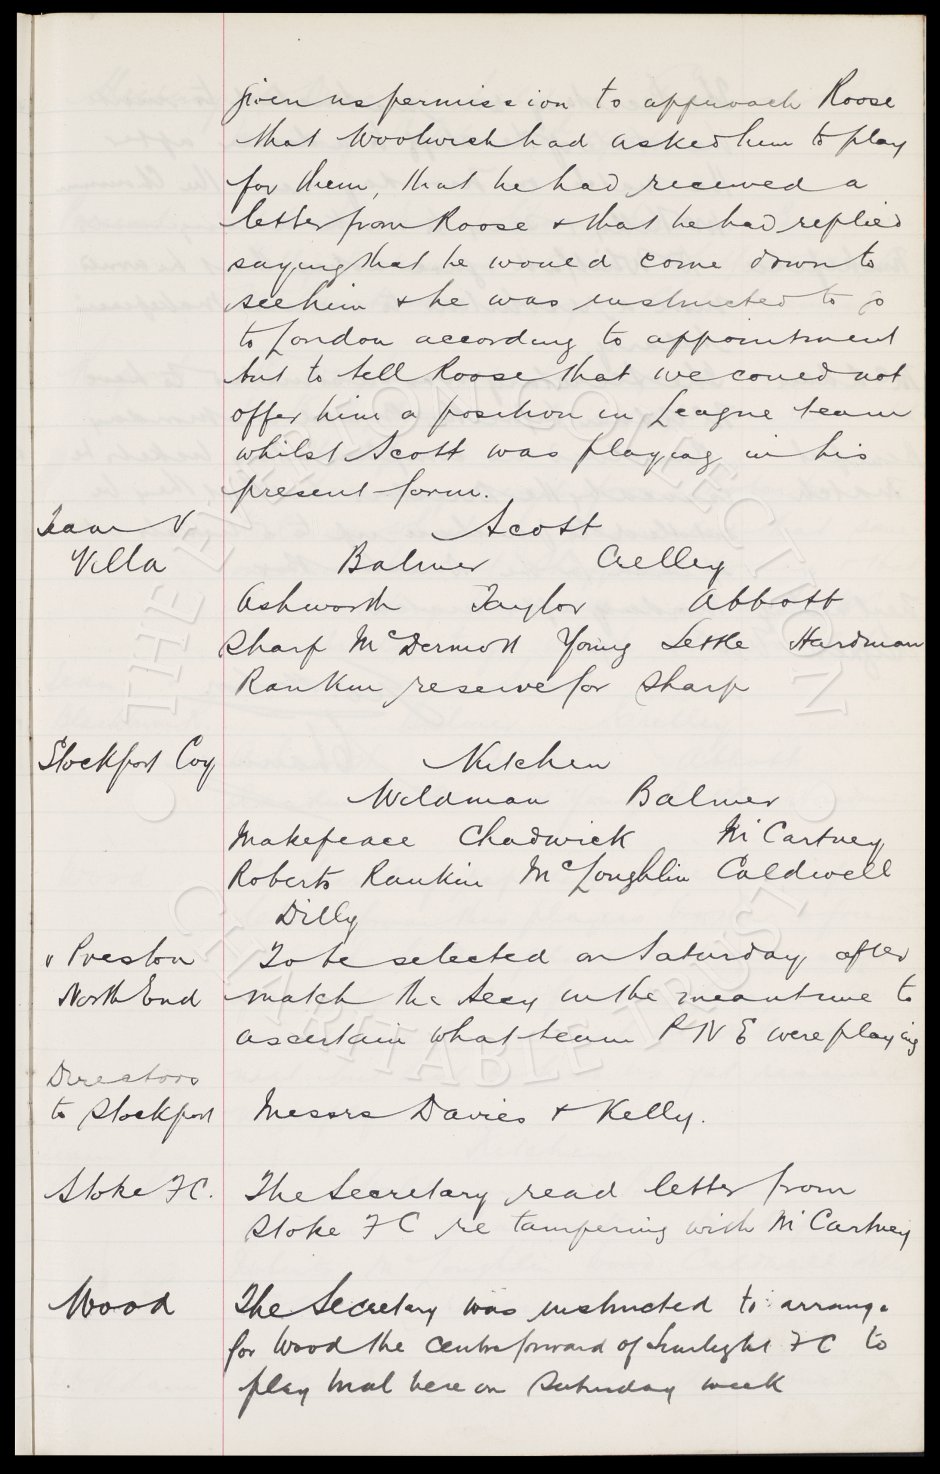 given us permission to approach Roose
that Woolwich had asked him to play
for them, that he had received a
letter from Roose & that he had replied
saying that he would come down to
see him & he was instructed to go
to London according to appointment
but to tell Roose that we could not
offer him a position in League team
whilst Scott was playing in his
present form.
Team V Scott
Villa Balmer Crelley
Ashworth Taylor Abbott
Sharp McDermott Young Settle Hardman
Rankin reserve for Sharp
Stockport Coy Kitchen
Wildman Balmer
Makepeace Chadwick McCartney
Roberts Rankin McLoughlin Caldwell
Dilly
v Preston To be selected on Saturday after
North End match the Secy in the meantime to
ascertain what team P N E were playing
Directors
to Stockport Messrs Davies & Kelly.
Stoke F C. The Secretary read letter from
Stoke F C re tampering with McCartney
Wood The Secretary was instructed to arrange
for Wood the centre forward of Sunlight F C to
play trial here on Saturday week
THE EVERTON COLLECTION
CHARITABLE TRUST